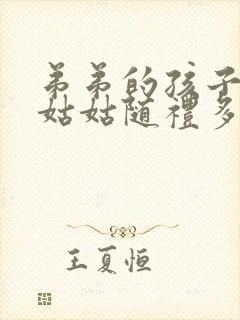 弟弟的孩子
姑姑随禮多
王夏恒